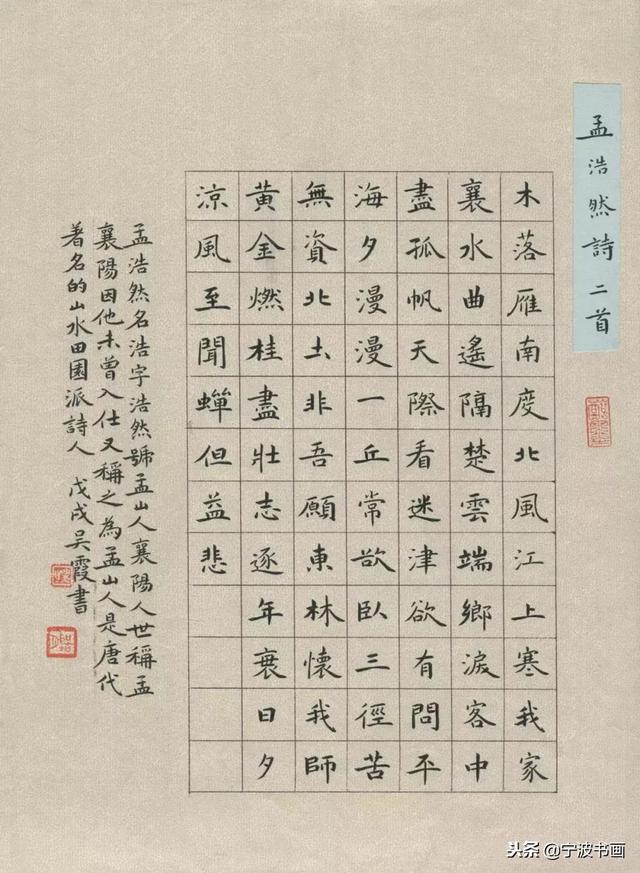 孟浩然詩二首
木落雁南度北風江上寒我家
襄水曲遙隔楚雲端鄉淚客中
盡孤帆天際看迷津欲有問平
海夕漫漫一丘常欲臥三徑苦
無資北土非吾願東林懷我師
黃金燃桂盡壯志逐年衰日夕
涼風至聞蟬但益悲
孟浩然名浩字浩然號孟山人襄陽人世稱孟
襄陽因他未曾入仕又稱之為孟山人是唐代
著名的山水田園派詩人 戊戌吳霞書
头条 @宁波书画